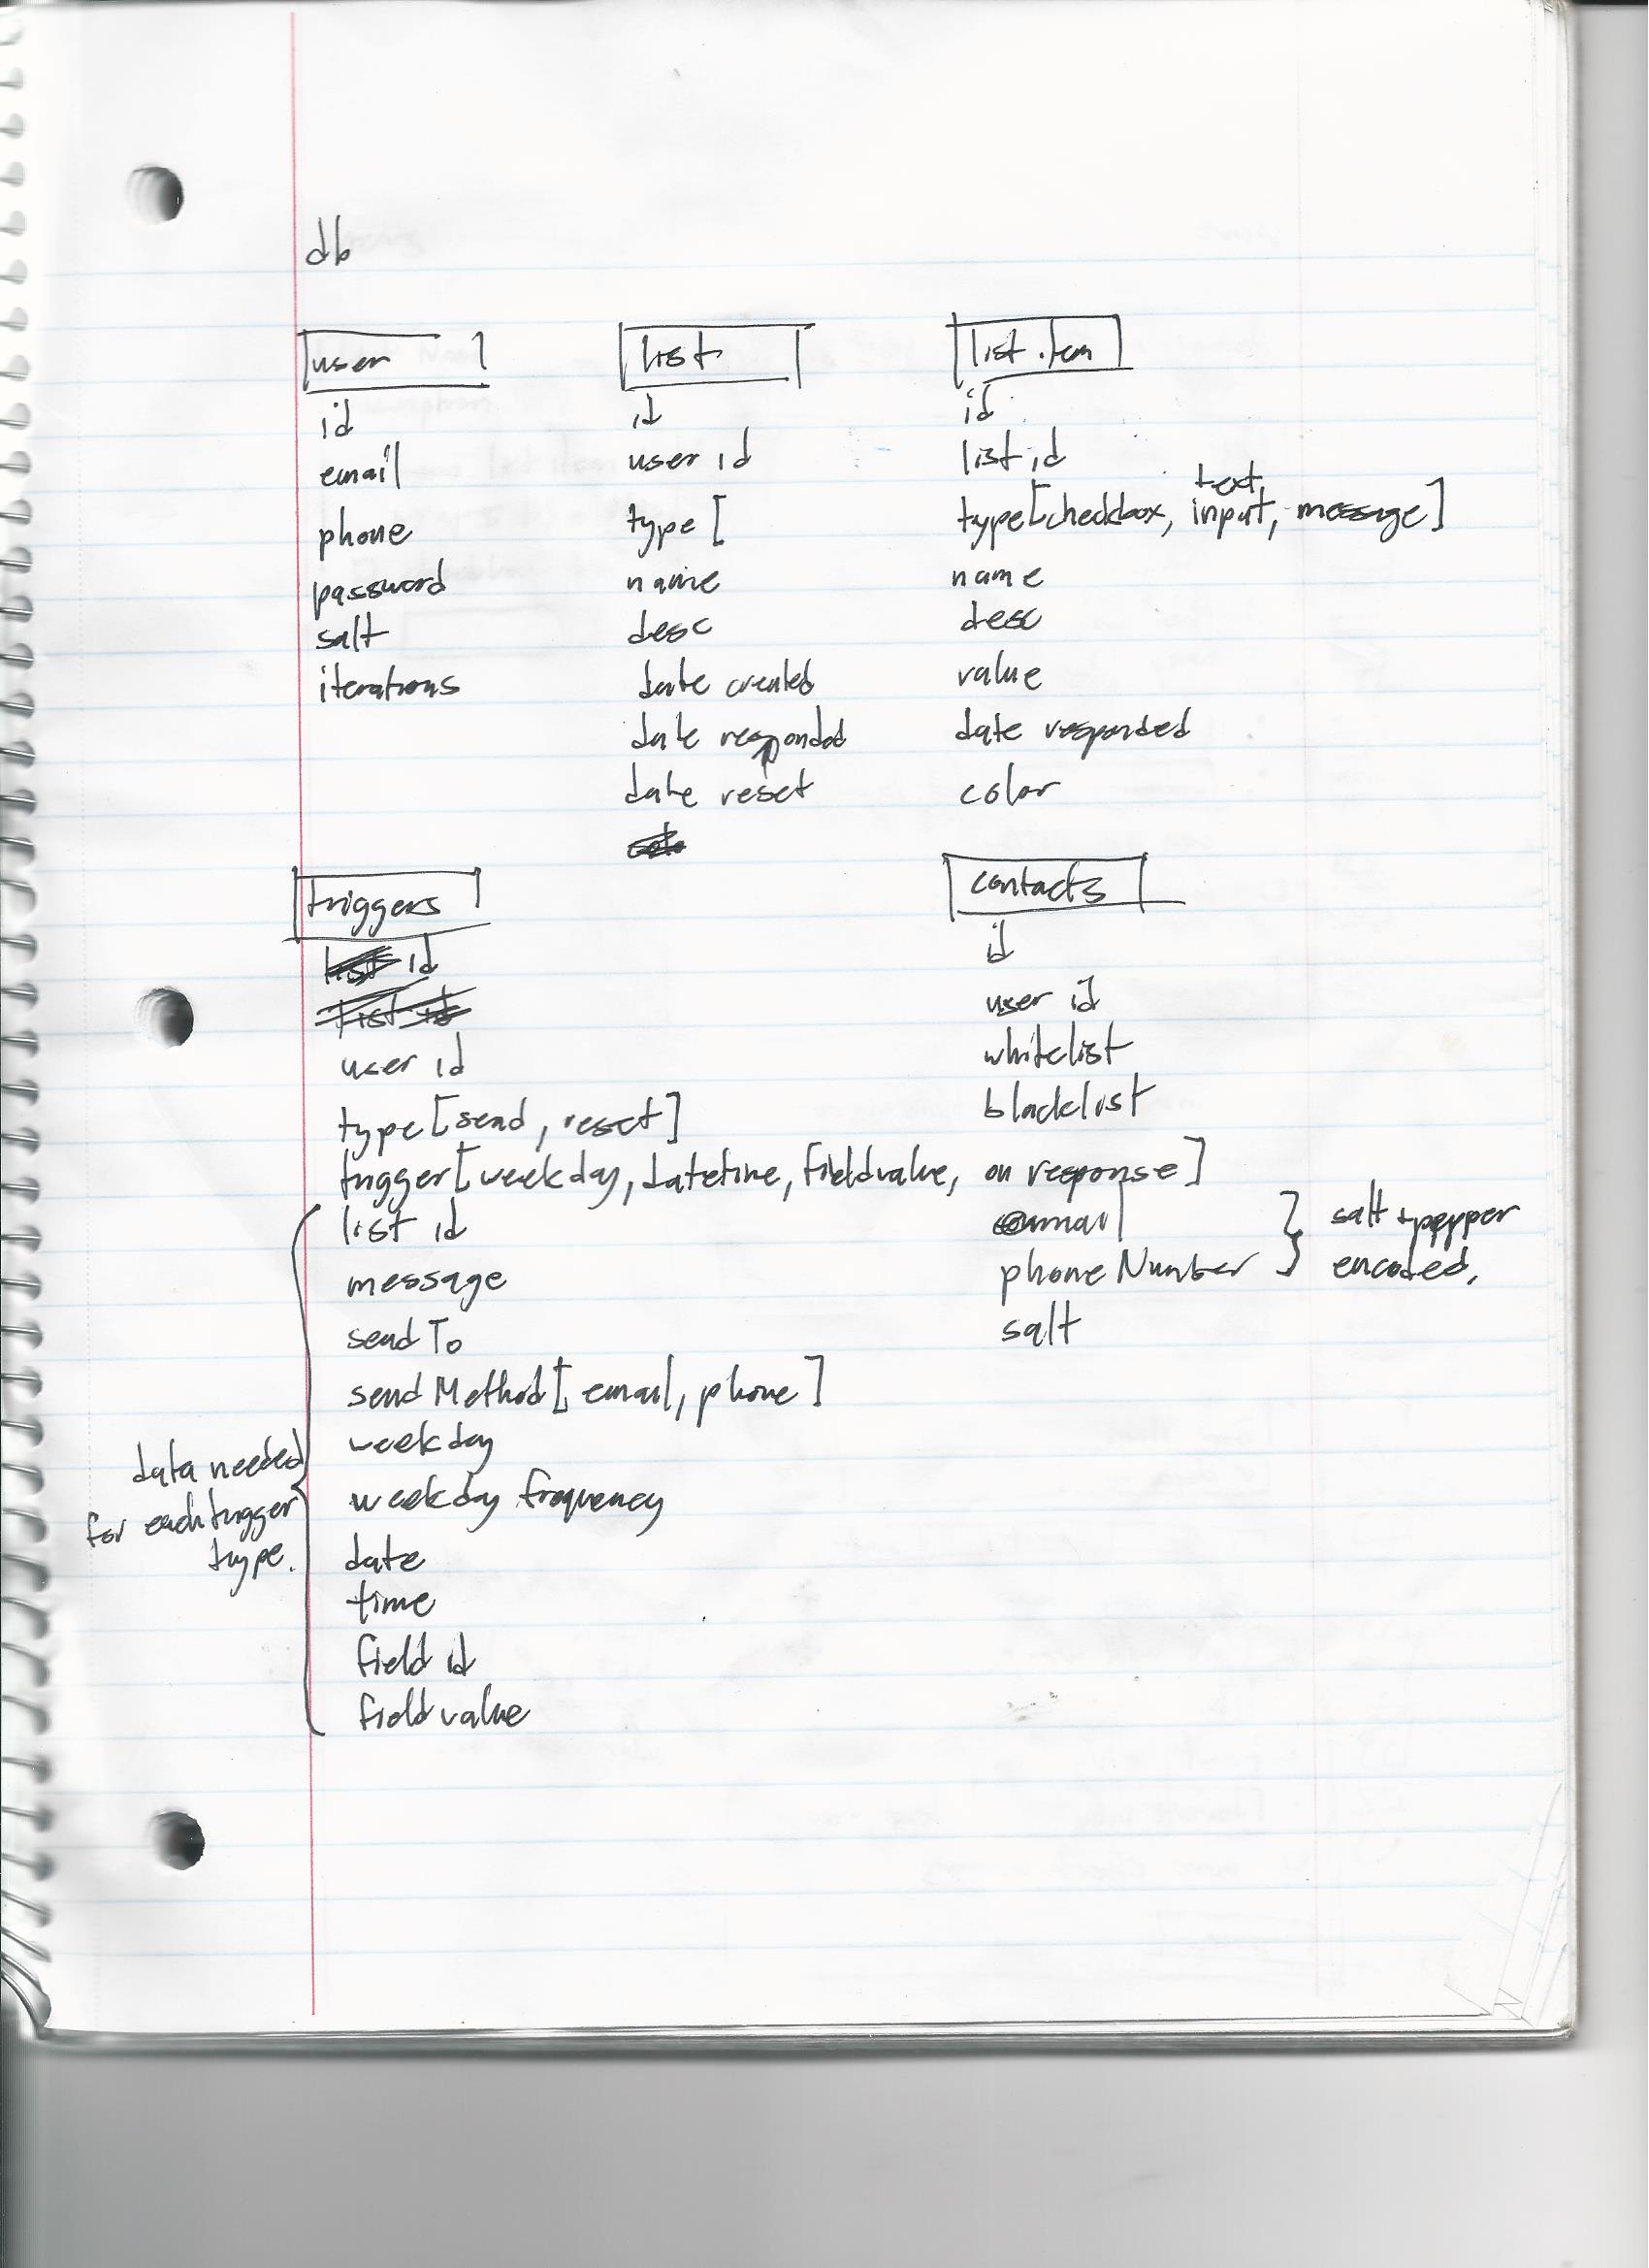 db
user
id
email
phone
password
salt
iterations
list
id
user id
type [
name
desc
date created
date responded
date reset
list item
id
list id
type [checkbox, text input, message]
name
desc
value
date responded
color
triggers
id
user id
type [send, reset]
trigger [weekday, datetime, fieldvalue, on response]
list id
message
sendTo
sendMethod [email, phone]
weekday
weekday frequency
date
time
field id
field value
data needed
for each trigger
type.
contacts
id
user id
whitelist
blacklist
email
phoneNumber
salt
salt + pepper
encoded.